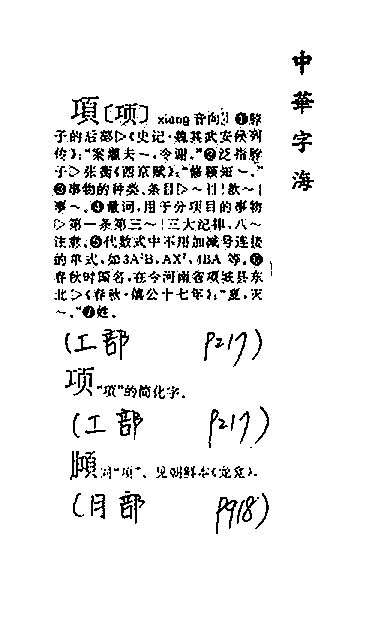 中華字海
項〔项〕xiàng 音向 ❶脖
子的后部▷《史记·魏其武安侯列
传》：“案灌夫～，令谢。”❷泛指脖
子▷张衡《西京赋》：“修额短～。”
❸事物的种类、条目▷～目｜款～｜
事～。❹量词，用于分项目的事物
▷第一条第三～｜三大纪律，八～
注意。❺代数式中不用加减号连接
的单式，如3A²B，AX²，4BA 等。❻
春秋时国名，在今河南省项城县东
北▷《春秋·僖公十七年》：“夏，灭
～。”❼姓。
(工部 P217)
项“項”的简化字。
(工部 P217)
同“項”。见朝鲜本《龙龛》。
(月部 P918)